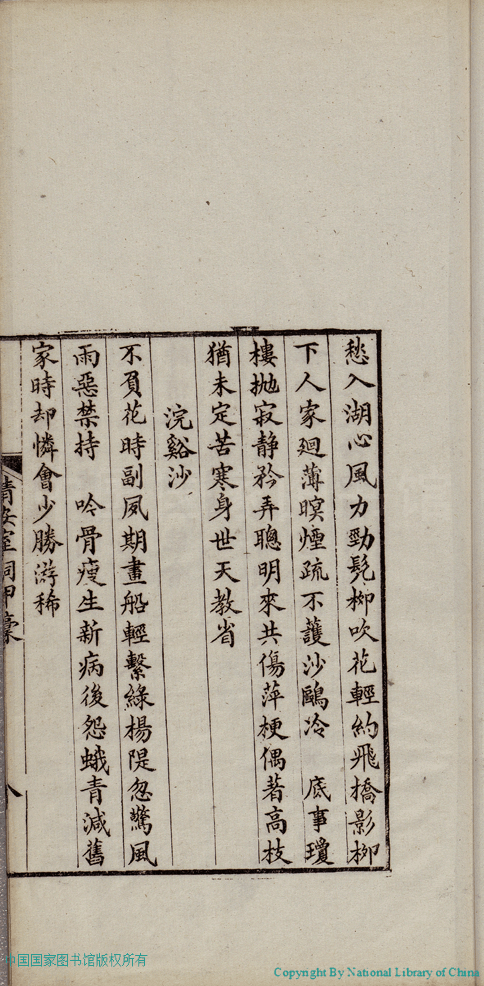 愁入湖心風力勁髡柳吹花輕約飛橋影柳
下人家迴薄暝煙疏不護沙鷗冷　底事瓊
樓拋寂靜矜弄聰明來共傷萍梗偶著高枝
猶未定苦寒身世天教省
浣谿沙
不負花時副夙期畫船輕繫綠楊隄忽驚風
雨惡禁持　吟骨瘦生新病後怨蛾青減舊
家時却憐會少勝游稀
室詞甲稾
八
中国国家图书馆版权所有
Copyright By National Library of China